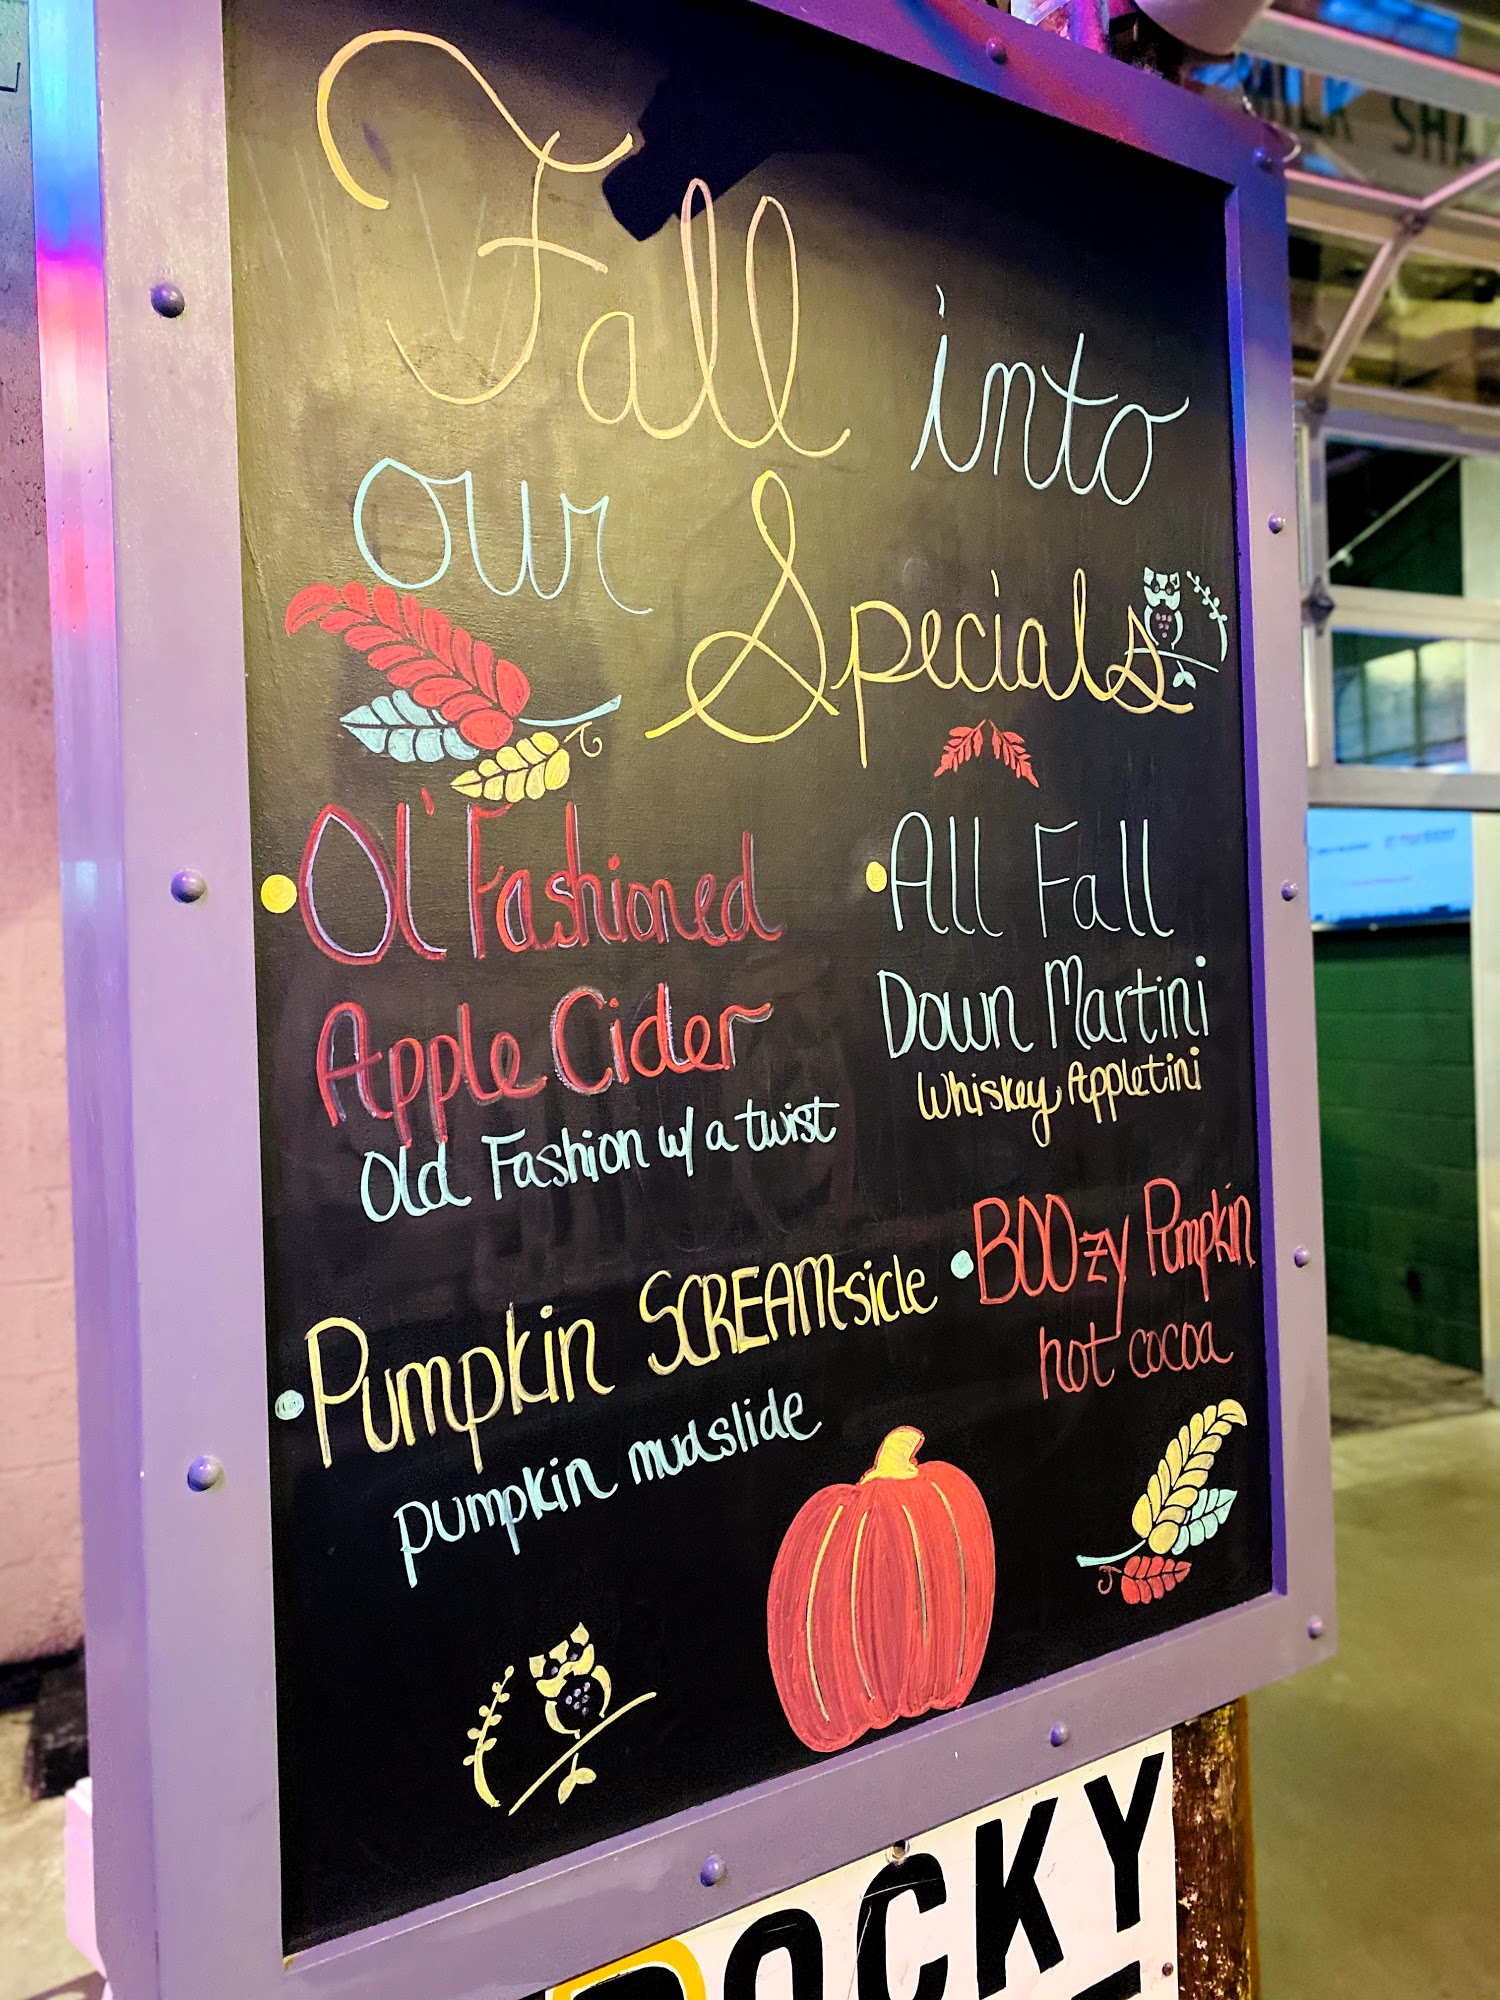 Fall into
our Specials
Ol' Fashioned
Apple Cider
Old Fashion w/ a twist
All Fall
Down Martini
Whiskey Appletini
Pumpkin SCREAM-sicle
pumpkin mudslide
BOOzy Pumpkin
hot cocoa
MILK SHA
ROCKY